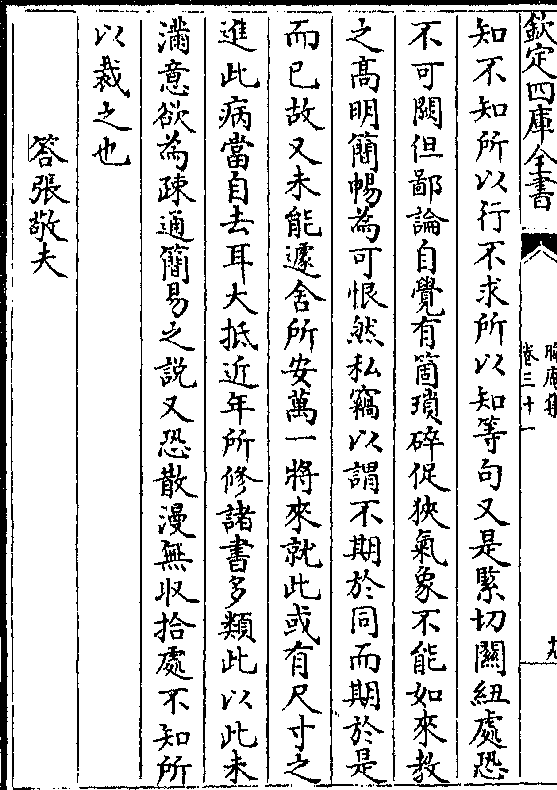 欽定四庫全書
卷三十一
知不知所以行不求所以知等句又是緊切關紐處恐
不可闕但鄙論自覺有箇瑣碎促狹氣象不能如來教
之髙明簡暢為可恨然私竊以謂不期於同而期於是
而已故又未能遽舍所安萬一將來就此或有尺寸之
進此病當自去耳大抵近年所修諸書多類此以此未
滿意欲為疎通簡易之說又恐散漫無収拾處不知所
以裁之也
答張敬夫